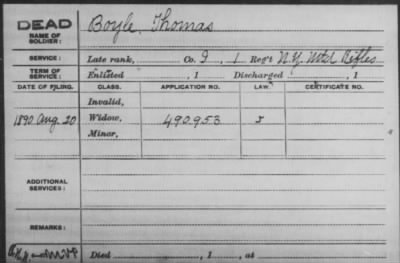 DEAD Boyle, Thomas
NAME OF SOLDIER:
SERVICE: Late rank, Co. I, 1 Reg't N.Y. Mtd Rifles
TERM OF SERVICE: Enlisted , 1 Discharged , 1
DATE OF FILING. CLASS. APPLICATION NO. LAW. CERTIFICATE NO.
Invalid,
1890 Aug. 20 Widow, 490.953
Minor,
ADDITIONAL SERVICES:
REMARKS:
Died , 1 , at